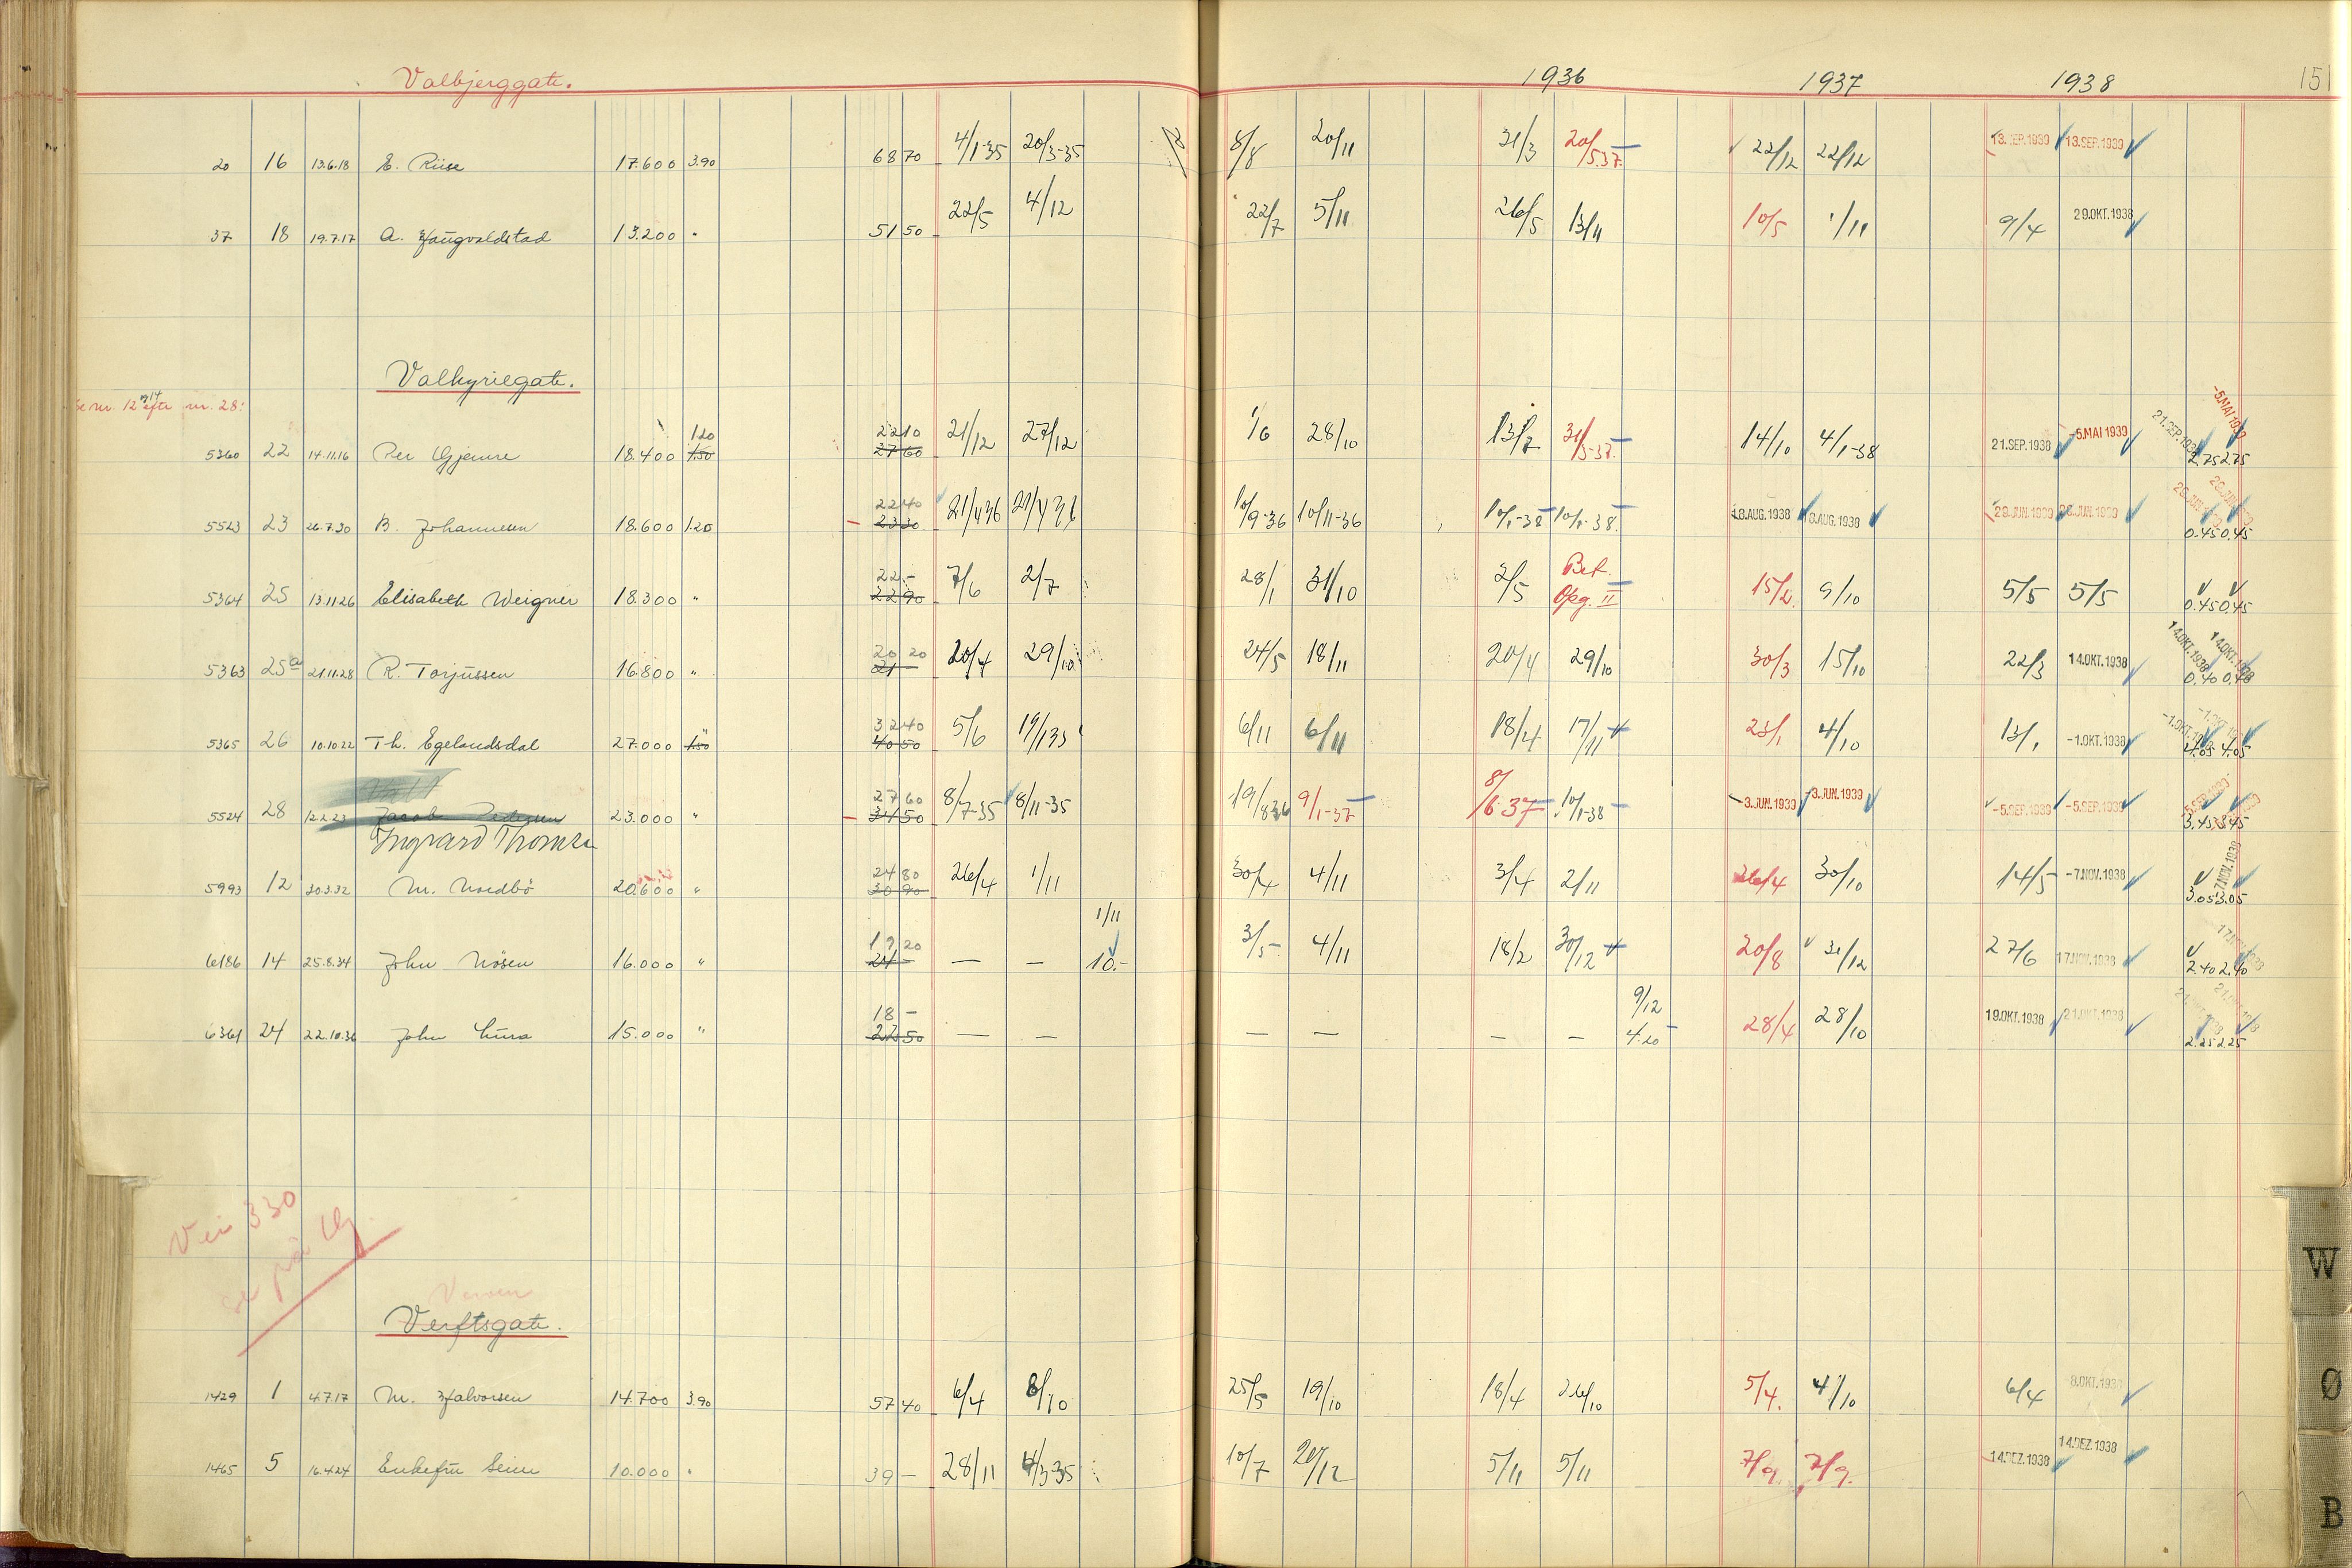 Valbjerggate. 1936 1937 1938 151
20 16 13.6.18 E. Riise 17.600 3.90 68 70 4/1-35 20/3-35 8/8 20/11 31/3 20/5.37. 22/12 22/12 13.SEP.1939 13.SEP.1939
37 18 19.7.17 A. Haugvaldstad 13.200 " 51 50 22/5 4/12 22/7 5/11 26/5 13/11 10/5 1/11 9/4 29.OKT.1938
Valkyriegate.
nr. 12 og 14 efter nr. 28:
1.20 22 10
5360 22 14.11.16 Per Gjemre 18.400 1.50 27 60 21/12 27/12 1/6 28/10 13/7 31/3-37. 14/10 4/1-38 21.SEP.1938 -5.MAI 1939 21.SEP.1938 -5.MAI 1939 2.75 2.75
22 40
5523 23 26.7.30 B. Johannesen 18.600 1.20 23 30 21/4 36 21/4 36 10/9-36 10/11-36 10/1-38 10/1-38. 18.AUG.1938 18.AUG.1938 29.JUN.1939 29.JUN.1939 0.45 0.45
22 -
5364 25 13.11.26 Elisabeth Weigner 18.300 " 22 90 7/6 2/7 28/1 31/10 2/5 Bet. Opg. II 15/2. 9/10 5/5 5/5 0.45 0.45
20 20
5363 25a 21.11.28 R. Torjussen 16.800 " 21 - 20/4 29/10 24/5 18/11 20/4 29/10 30/3 15/10 22/3 14.OKT.1938 14.OKT.1938 14.OKT.1938 0.40 0.40
32 40
5365 26 10.10.22 Th. Egelandsdal 27.000 " 1.50 40 50 5/6 19/1 35 6/11 6/11 18/4 17/11 23/1 4/10 13/1 -1.OKT.1938 -1.OKT.1938 4.05 4.05
27 60
5524 28 12.2.23 Jacob Pedersen 23.000 " 34 50 8/7-35 8/11-35 19/8 36 9/1-37 8/6 37 10/1-38 -3.JUN.1939 -3.JUN.1939 -5.SEP.1939 -5.SEP.1939 3.45 3.45
Ingvard Thomsen
24 80
5993 12 30.3.32 M. Nordbö 20.600 " 30 90 26/4 1/11 30/4 4/11 3/4 2/11 26/4 30/10 14/5 -7.NOV.1938 -7.NOV.1938 3.05 3.05
1/11
19 20
6186 14 25.8.34 John Nösen 16.000 " 24 - — — 10.- 3/5 4/11 18/2 30/12 20/8 31/12 27/6 17.NOV.1938 2.40 2.40
18 - 9/12
6361 24 22.10.36 John Lura 15.000 " 22 50 — — — — — — 4.20 28/4 28/10 19.OKT.1938 21.OKT.1938 2.25 2.25
Vei 330
se på Ug
Verven
Verftsgate.
1429 1 4.7.17 M. Halvorsen 14.700 3.90 57 40 6/4 8/10 25/5 19/10 18/4 26/10 5/4. 4/10 6/4 -8.OKT.1938
1465 5 16.4.24 Enkefru Seim 10.000 " 39 - 28/11 4/3-35 10/7 20/12 5/11 5/11 7/9. 7/9. 14.DEZ.1938 14.DEZ.1938
W
Ø
B